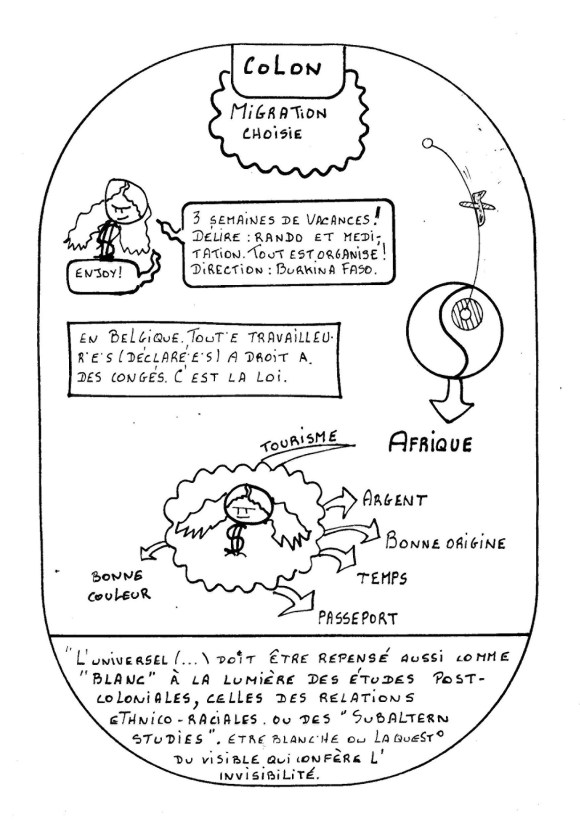 COLON
MIGRATION
CHOISIE
3 SEMAINES DE VACANCES!
DÉLIRE : RANDO ET MEDI-
TATION. TOUT EST ORGANISÉ!
DIRECTION : BURKINA FASO.
ENJOY!
EN BELGIQUE. TOUT·E TRAVAILLEU·
R·E·S (DÉCLARÉ·E·S) A DROIT A
DES CONGÉS. C'EST LA LOI.
AFRIQUE
TOURISME
ARGENT
BONNE ORIGINE
TEMPS
PASSEPORT
BONNE
COULEUR
"L'UNIVERSEL (...) DOIT ÊTRE REPENSÉ AUSSI COMME
"BLANC" À LA LUMIÈRE DES ÉTUDES POST-
COLONIALES, CELLES DES RELATIONS
ETHNICO-RACIALES. OU DES "SUBALTERN
STUDIES". ETRE BLANC·HE OU LA QUEST°
DU VISIBLE QUI CONFÈRE L'
INVISIBILITÉ.